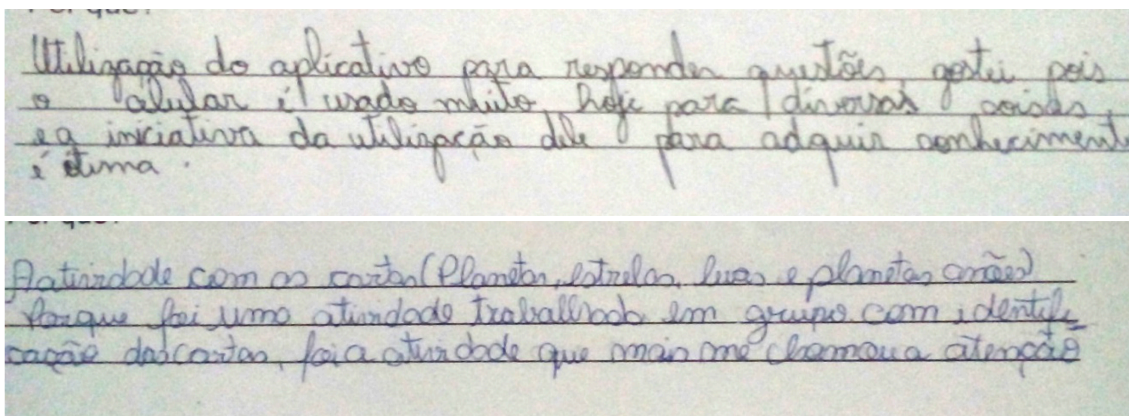 Utilização do aplicativo para responder questões, gostei pois
o celular é usado muito hoje para diversas coisas,
e a iniciativa da utilização dele para adquirir conhecimento
é otima.
A atividade com as cartas (Planetas, estrelas, luas e planetas anões)
Porque foi uma atividade trabalhada em grupo com identifi
cação das cartas, foi a atividade que mais me chamou a atenção